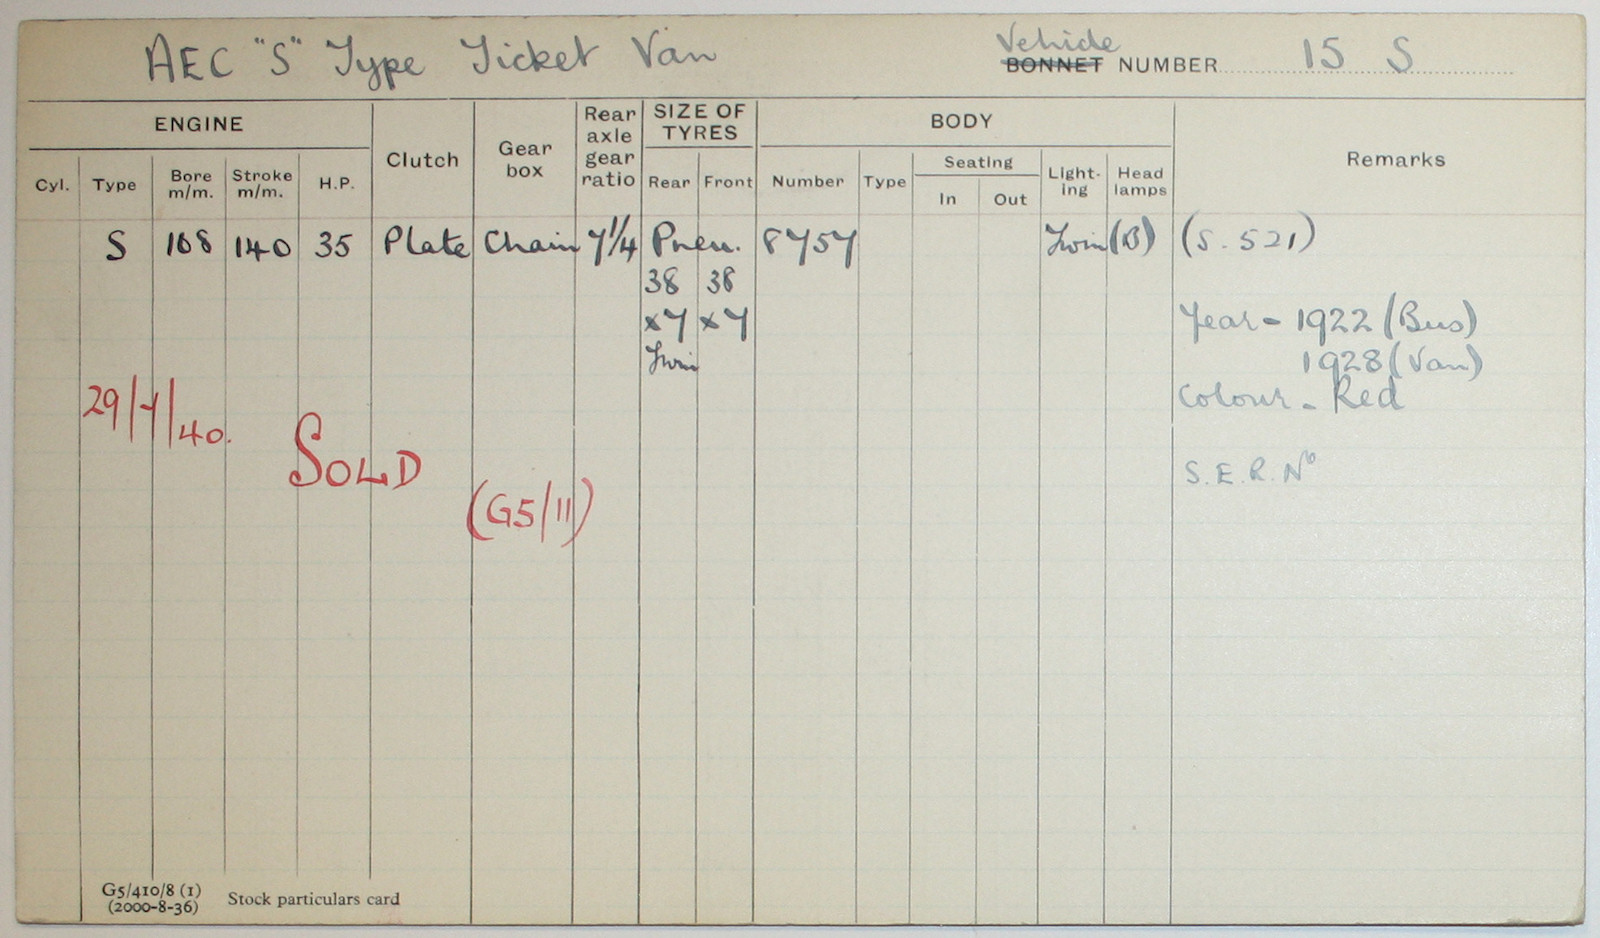 AEC "S" Type Ticket Van
Vehicle
BONNET NUMBER 15 S
ENGINE
Clutch
Gear box
Rear axle gear ratio
SIZE OF TYRES
BODY
Remarks
Cyl. Type Bore m/m. Stroke m/m. H.P.
Rear Front Number Type
Seating
In Out
Light-ing
Head lamps
S 108 140 35 Plate Chain 7¼ Pneu. 8757 Twin (B) (S. 521)
38 38
x7 x7
Twin
Year - 1922 (Bus)
1928 (Van)
Colour - Red
29/7/40.
SOLD
S.E.R. Nº
(G5/11)
G5/410/8 (1)
(2000-8-36)
Stock particulars card